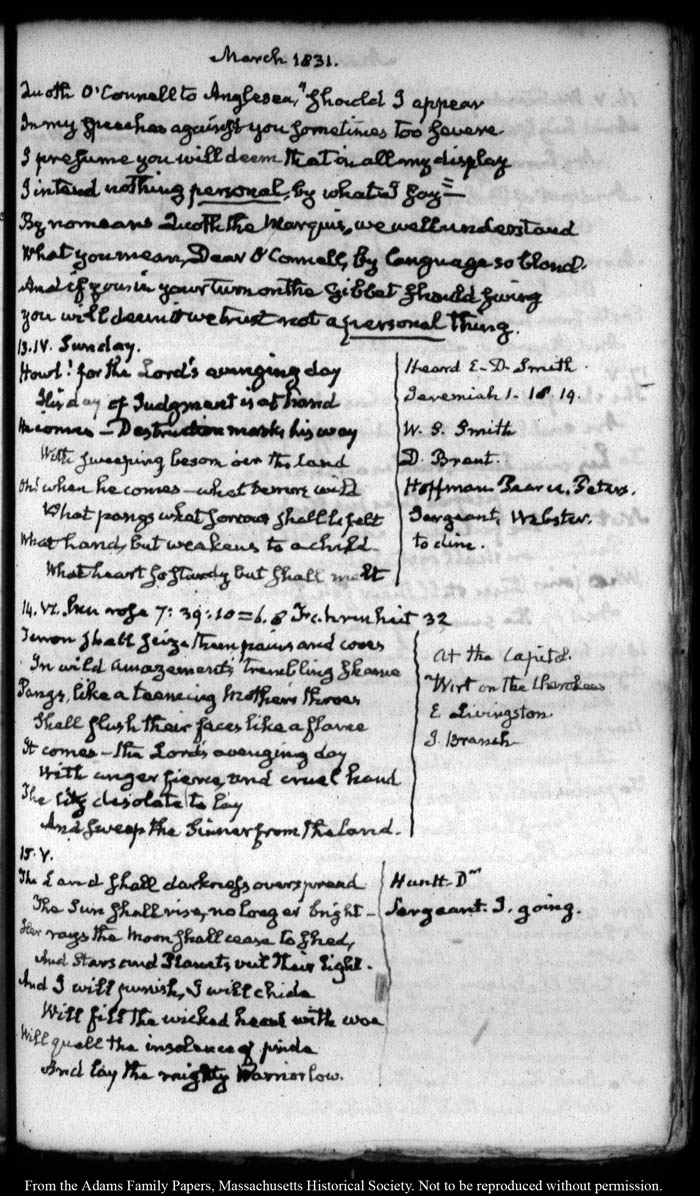 March 1831.
Quoth O'Connell to Anglesea, "Should I appear
In my Speeches against you sometimes too severe
I presume you will deem that in all my display
I intend nothing personal, by what I say"—
By no means Quoth the Marquis, we well understand
What you mean, Dear O'Connell, by language so bland.
And if you in your turn on the Gibbet should swing
You will deem it we trust not a personal thing.
13. IV. Sunday.
Howl! for the Lord's avenging day
His day of Judgment is at hand
He comes— Destruction marks his way
With sweeping besom o'er the land
Oh! when he comes— what terrors wild
What pangs what sorrows shall be felt
What hand, but weakens to a child
What heart so sturdy but shall melt
Heard E. D. Smith.
Jeremiah 1. 18 19.
W. S. Smith
D. Brent.
Hoffman. Pearce. Peters.
Sergeant, Webster.
to dine.
14. VI. Sun rose 7: 39:10=6. 8 Fahrenheit 32
Terror shall seize them pains and woes
In wild amazement's trembling shame
Pangs, like a teeming Mother's throes
Shall flush their faces like a flame
It comes— the Lord's avenging day
With anger fierce, and cruel hand
The City desolate to lay
And sweep the Sinner from the land.
At the Capitol.
Wirt on the Cherokees
E. Livingston.
J. Branch
15. V.
The Land shall darkness overspread
The Sun shall rise, no longer bright—
Her rays the Moon shall cease to shed,
And Stars and Planets, veil their light.
And I will punish, I will chide
Will fill the wicked heart with woe
Will quell the insolence of pride
And lay the mighty Warrior low.
Huntt. Dr
Sergeant. J. going.
From the Adams Family Papers, Massachusetts Historical Society. Not to be reproduced without permission.